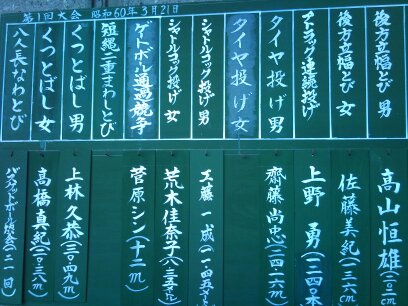 第1回大会 昭和60年3月21日
後方立幅とび 男
後方立幅とび 女
連続投げ
タイヤ投げ 男
タイヤ投げ 女
シャトルコック投げ 男
シャトルコック投げ 女
ゲートボール通過競争
短縄二重まわしとび
くつとばし 男
くつとばし 女
八人長なわとび
高山恒雄
佐藤美紀
上野 勇
齋藤尚忠(二四・一六m
工藤一成
荒木佳奈子
菅原シン(十二m)
上林久恭(三〇・四九m)
高橋真紀(二〇・三八m)
バスケットボール